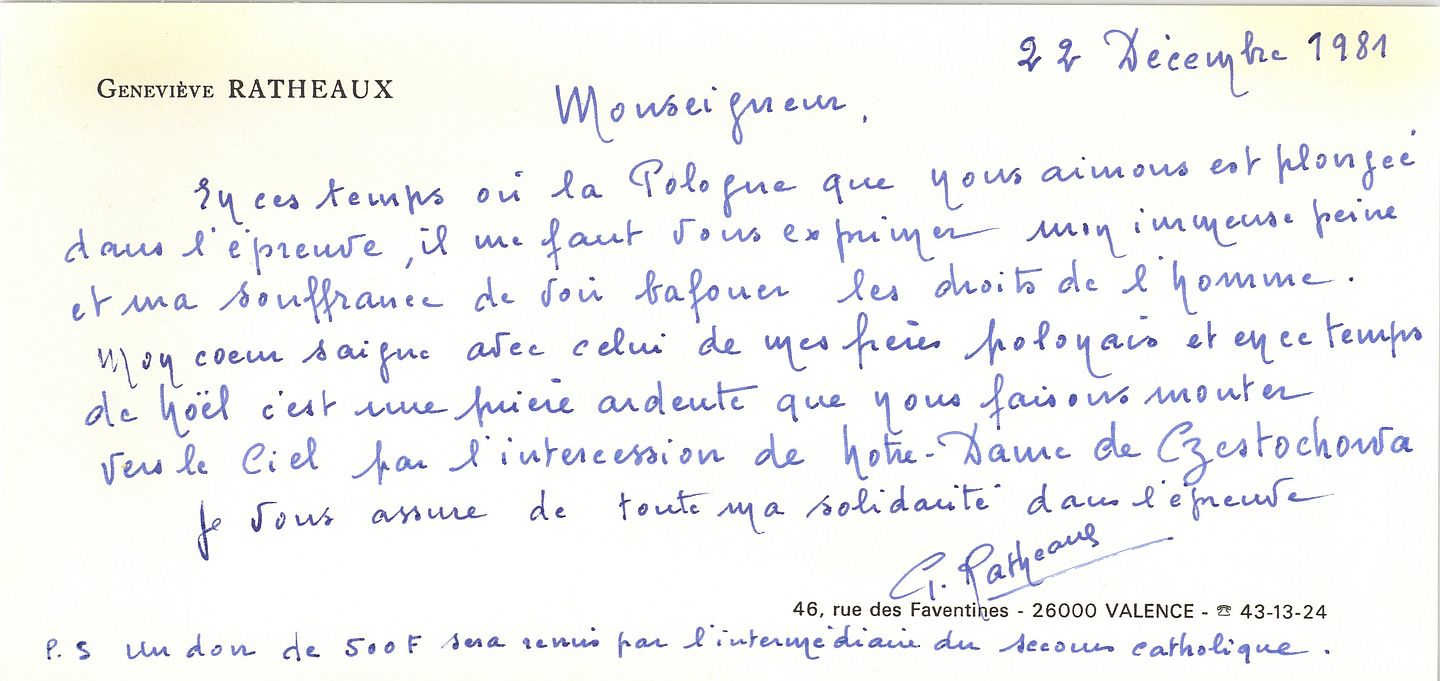 22 Décembre 1981
GENEVIÈVE RATHEAUX
Monseigneur,
En ces temps où la Pologne que nous aimons est plongée
dans l'épreuve, il me faut vous exprimer mon immense peine
et ma souffrance de voir bafouer les droits de l'homme.
Mon coeur saigne avec celui de mes frères polonais et en ce temps
de Noël c'est une prière ardente que nous faisons monter
vers le Ciel par l'intercession de Notre-Dame de Czestochowa
Je vous assure de toute ma solidarité dans l'épreuve
G. Ratheaux
46, rue des Faventines - 26000 VALENCE - ☎ 43-13-24
P.S Un don de 500F sera remis par l'intermédiaire du secours catholique.